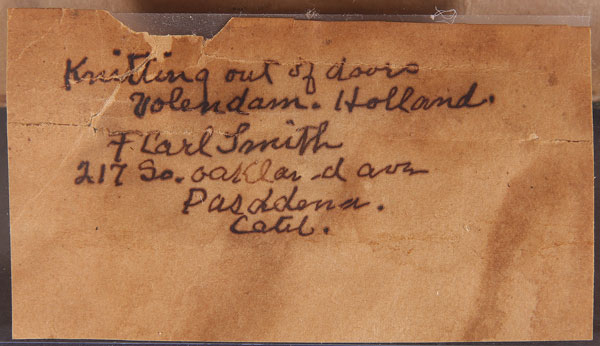 Knitting out of doors
Volendam. Holland.
F Carl Smith
217 So. oakland ave
Pasddena.
Calif.